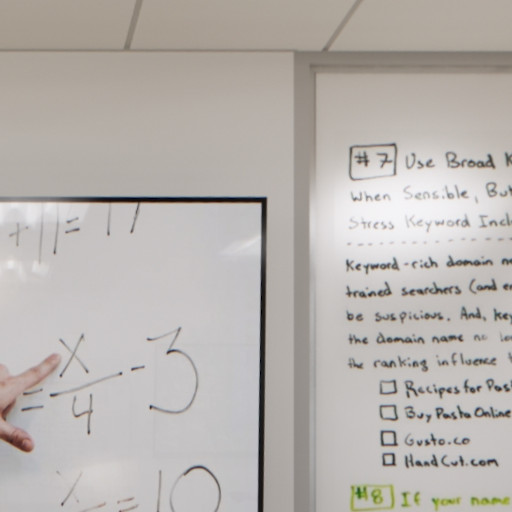 + 11 = 17
= x/4 - 3
x
= 10
#7 Use Broad
When Sensible, But
Stress Keyword
Keyword-rich domain
trained searchers (and
be suspicious. And,
the domain name no
the ranking influence
Recipes for
Buy Pasta Online
Gusto.co
HandCut.com
#8 If your name